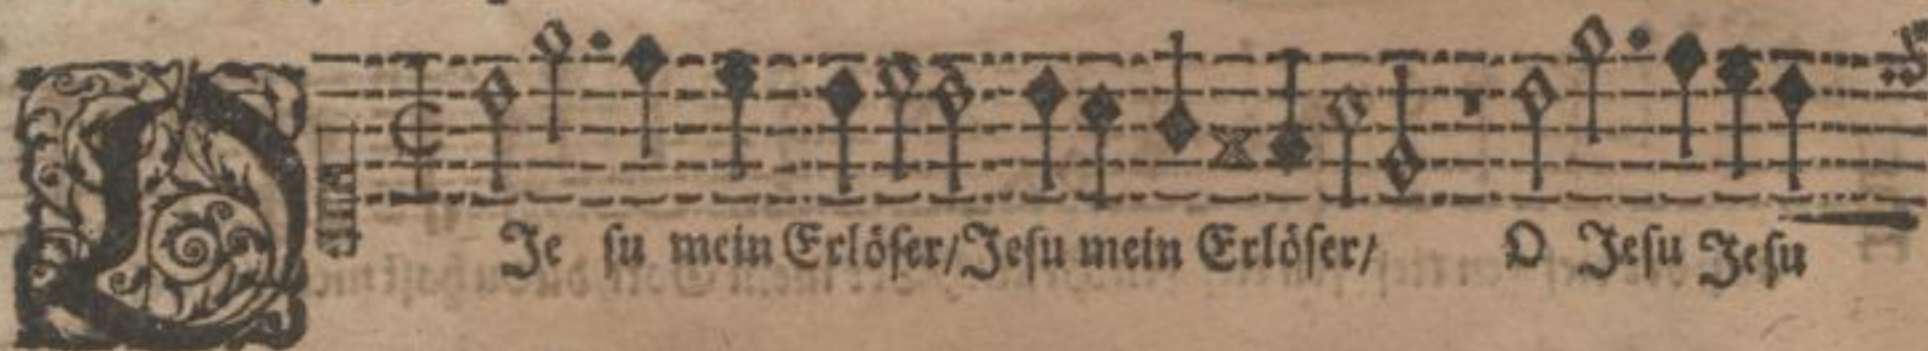 O Je su mein Erlöser/Jesu mein Erlöser/ O Jesu Jesu